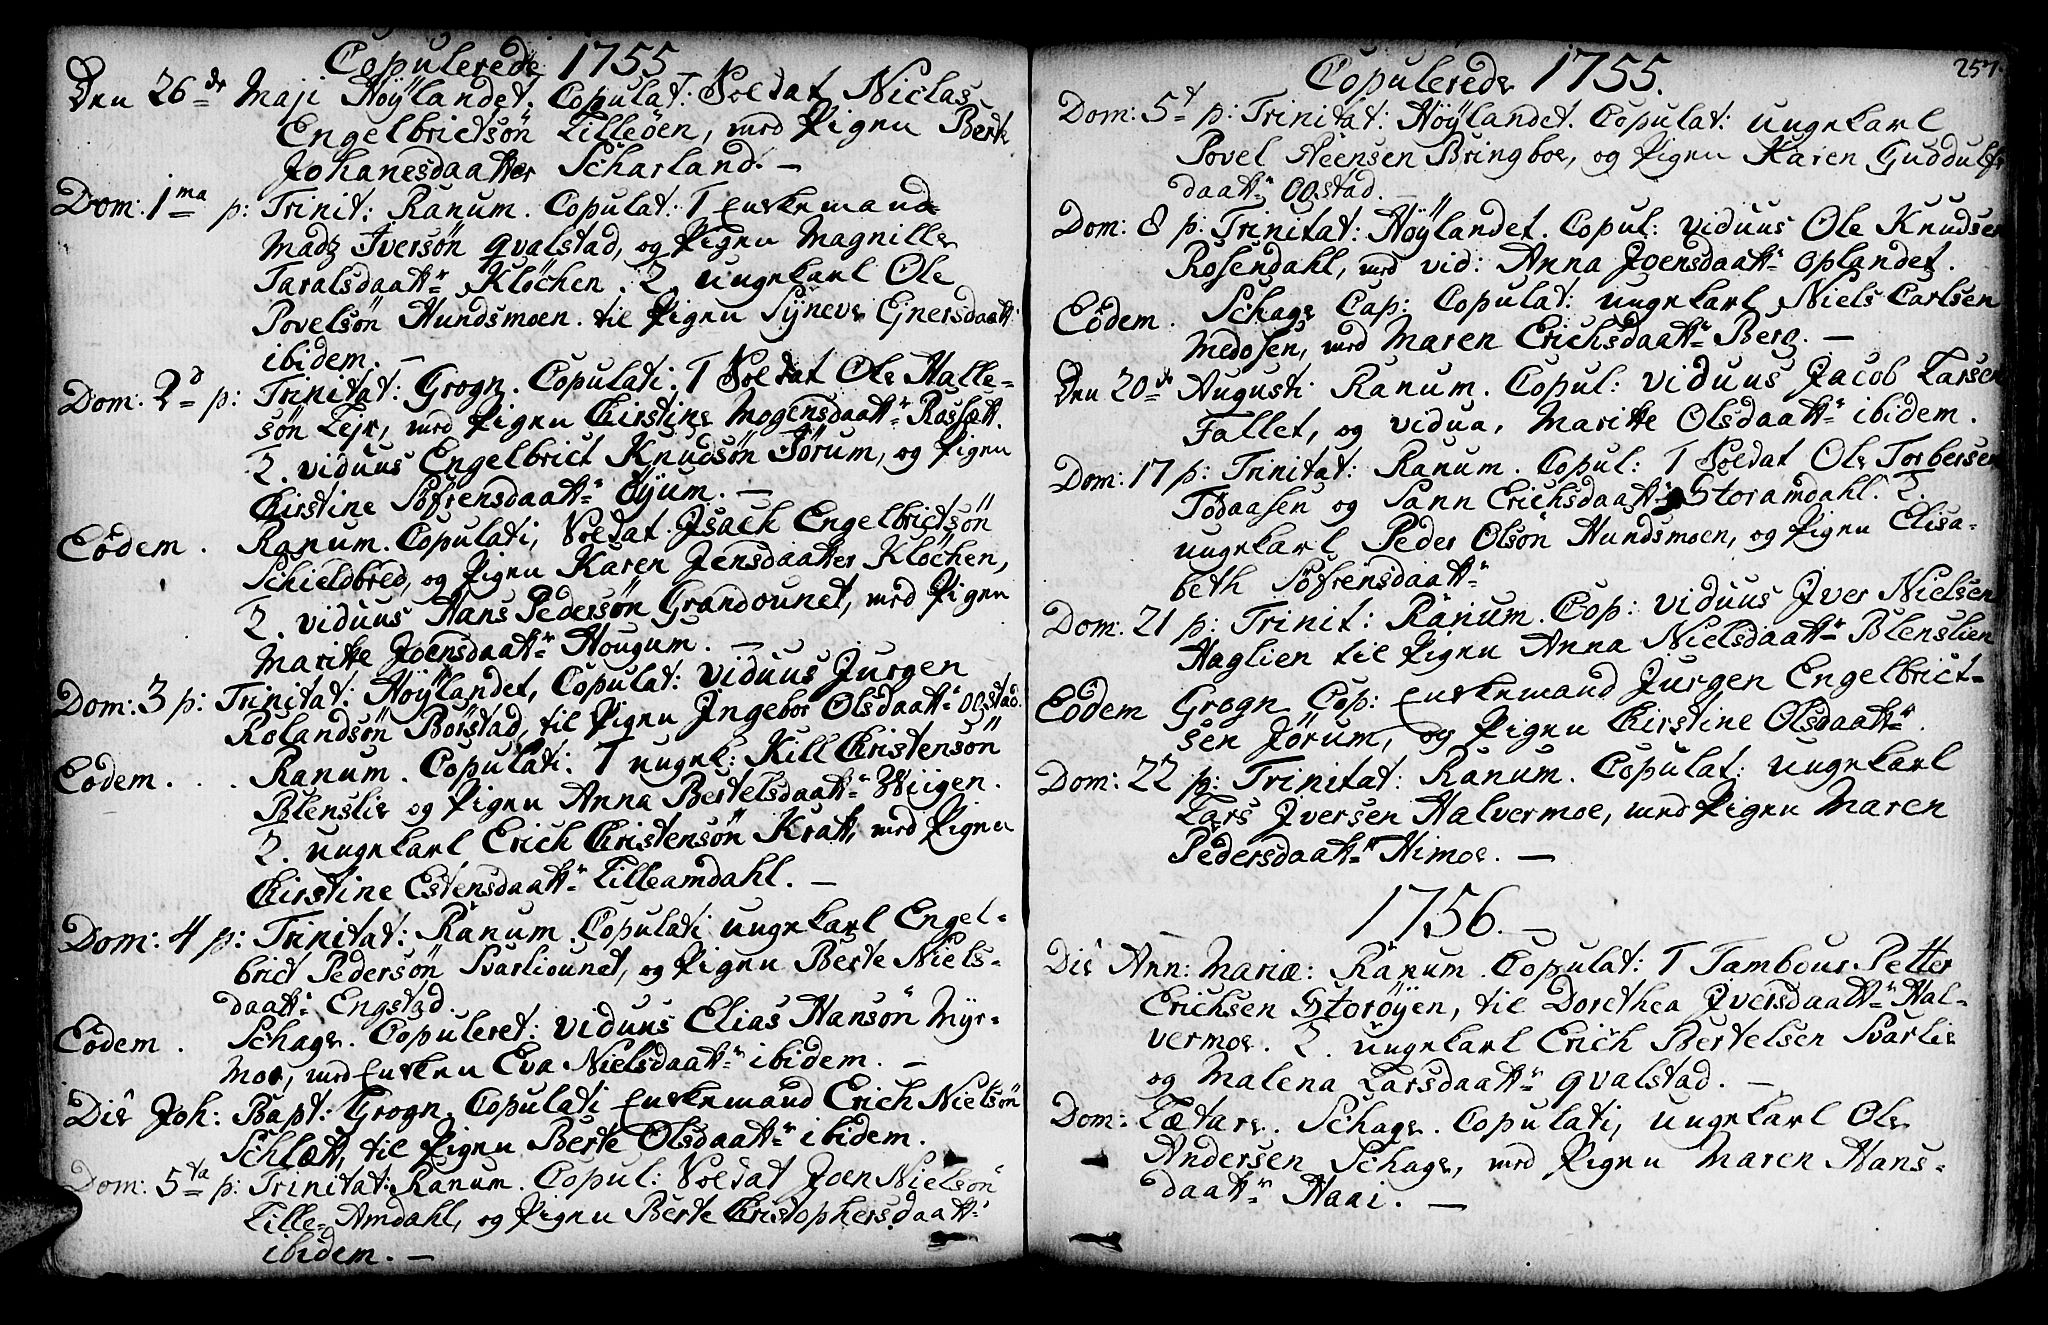 Copulerede 1755
Den 26de Maji Höÿlandet. Copulat: Soldat Niclas
Engelbrictsön Lilleöen, med Pigen Berte
Johanesdaatter Scharland. —
Dom: 1ma p: Trinit: Ranum. Copulat: 1 Enkemand
Madz Iversön Qvalstad, og Pigen Magnille
Taralsdaattr Klöchen. 2. ungekarl Ole
Povelsön Hundsmoen. til Pigen Sÿneve Enersdaattr
ibidem. —
Dom: 2d p: Trinitat: Grogn. Copulati: 1 Soldat Ole Halle-
sön Lejr, med Pigen Chirstine Mogensdaattr Rossett.
2. viduus Engelbrict Knudsön Jörum, og Pigen
Chirstine Söfrensdaattr Öÿum. —
Eodem. Ranum. Copulati, Soldat Jsach Engelbrictsön
Schieldbred, og Pigen Karen Jensdaatter Klöchen,
2. viduus Hans Pedersön Grandounet, med Pigen
Maritte Joensdaattr Hougum. —
Dom: 3 p: Trinitat: Höÿlandet, Copulat: viduus Jurgen
Rolandsön Börstad, til Pigen Jngebor Olsdaattr Ocstad.
Eodem. . . Ranum. Copulati: 1 ungk: Kill Christensön
Blenslie og Pigen Anna Bertelsdaattr Wiigen.
2. ungekarl Erich Christensön Kratt, med Pigen
Chirstine Estensdaattr Lilleamdahl. —
Dom: 4 p: Trinitat: Ranum. Copulati ungekarl Engel-
brict Pedersön Svarliounet, og Pigen Berte Niels-
daattr Engstad.
Eodem. Schage. Copuleret: viduus Elias Hansön Mÿr-
moe, med Enken Eva Nielsdaattr ibidem. —
Die Joh: Bapt: Grogn. Copulati Enkemand Erich Nielsön
Schlett, til Pigen Berte Olsdaattr ibidem.
Dom: 5ta p: Trinitat: Ranum. Copul: Soldat Joen Nielsön
Lille-Amdahl, og Pigen Berte Christophersdaattr
ibidem. —
257.
Copulerede 1755.
Dom: 5t p: Trinitat: Höÿlandet. Copulat: ungekarl
Povel Steensen Bringboe, og Pigen Karen Guddulfs
daattr Ocstad.
Dom: 8 p: Trinitat: Höÿlandet. Copul: viduus Ole Knudsen
Rosendahl, med vid: Anna Joensdaattr Oplandet.
Eodem. Schage Cap: Copulat: ungekarl Niels Carlsen
Medosen, med Maren Erichsdaattr Berg. —
Den 20de Augusti Ranum. Copul: viduus Jacob Larsen
Fallet, og vidua, Maritte Olsdaattr ibidem.
Dom: 17 p: Trinitat: Ranum. Copul: 1 Soldat Ole Torbersen
Tödaasen og Sann Erichsdaattr Storamdahl. 2.
ungekarl Peder Olsön Hundsmoen, og Pigen Elisa-
beth Söfrensdaattr
Dom: 21 p: Trinit: Ranum. Cop: viduus Jver Nielsen
Haglien til Pigen Anna Nielsdaattr Blenslien
Eodem Grogn Cop: Enkemand Jurgen Engelbrict-
sen Jörum, og Pigen Chirstine Olsdaattr.
Dom: 22 p: Trinitat: Ranum. Copulat: ungekarl
Lars Jversen Halvermoe, med Pigen Maren
Pedersdaattr Himoe. —
1756. —
Die Ann: Mariæ: Ranum. Copulat: 1 Tambour Petter
Erichsen Storöÿen, til Dorethea Jversdaattr Hal-
vermoe. 2. ungekarl Erich Bertelsen Svarlie
og Malena Larsdaattr Qvalstad. —
Dom: Lætare. Schage. Copulati, ungekarl Ole
Andersen Schage, med Pigen Maren Hans-
daattr Haai. —